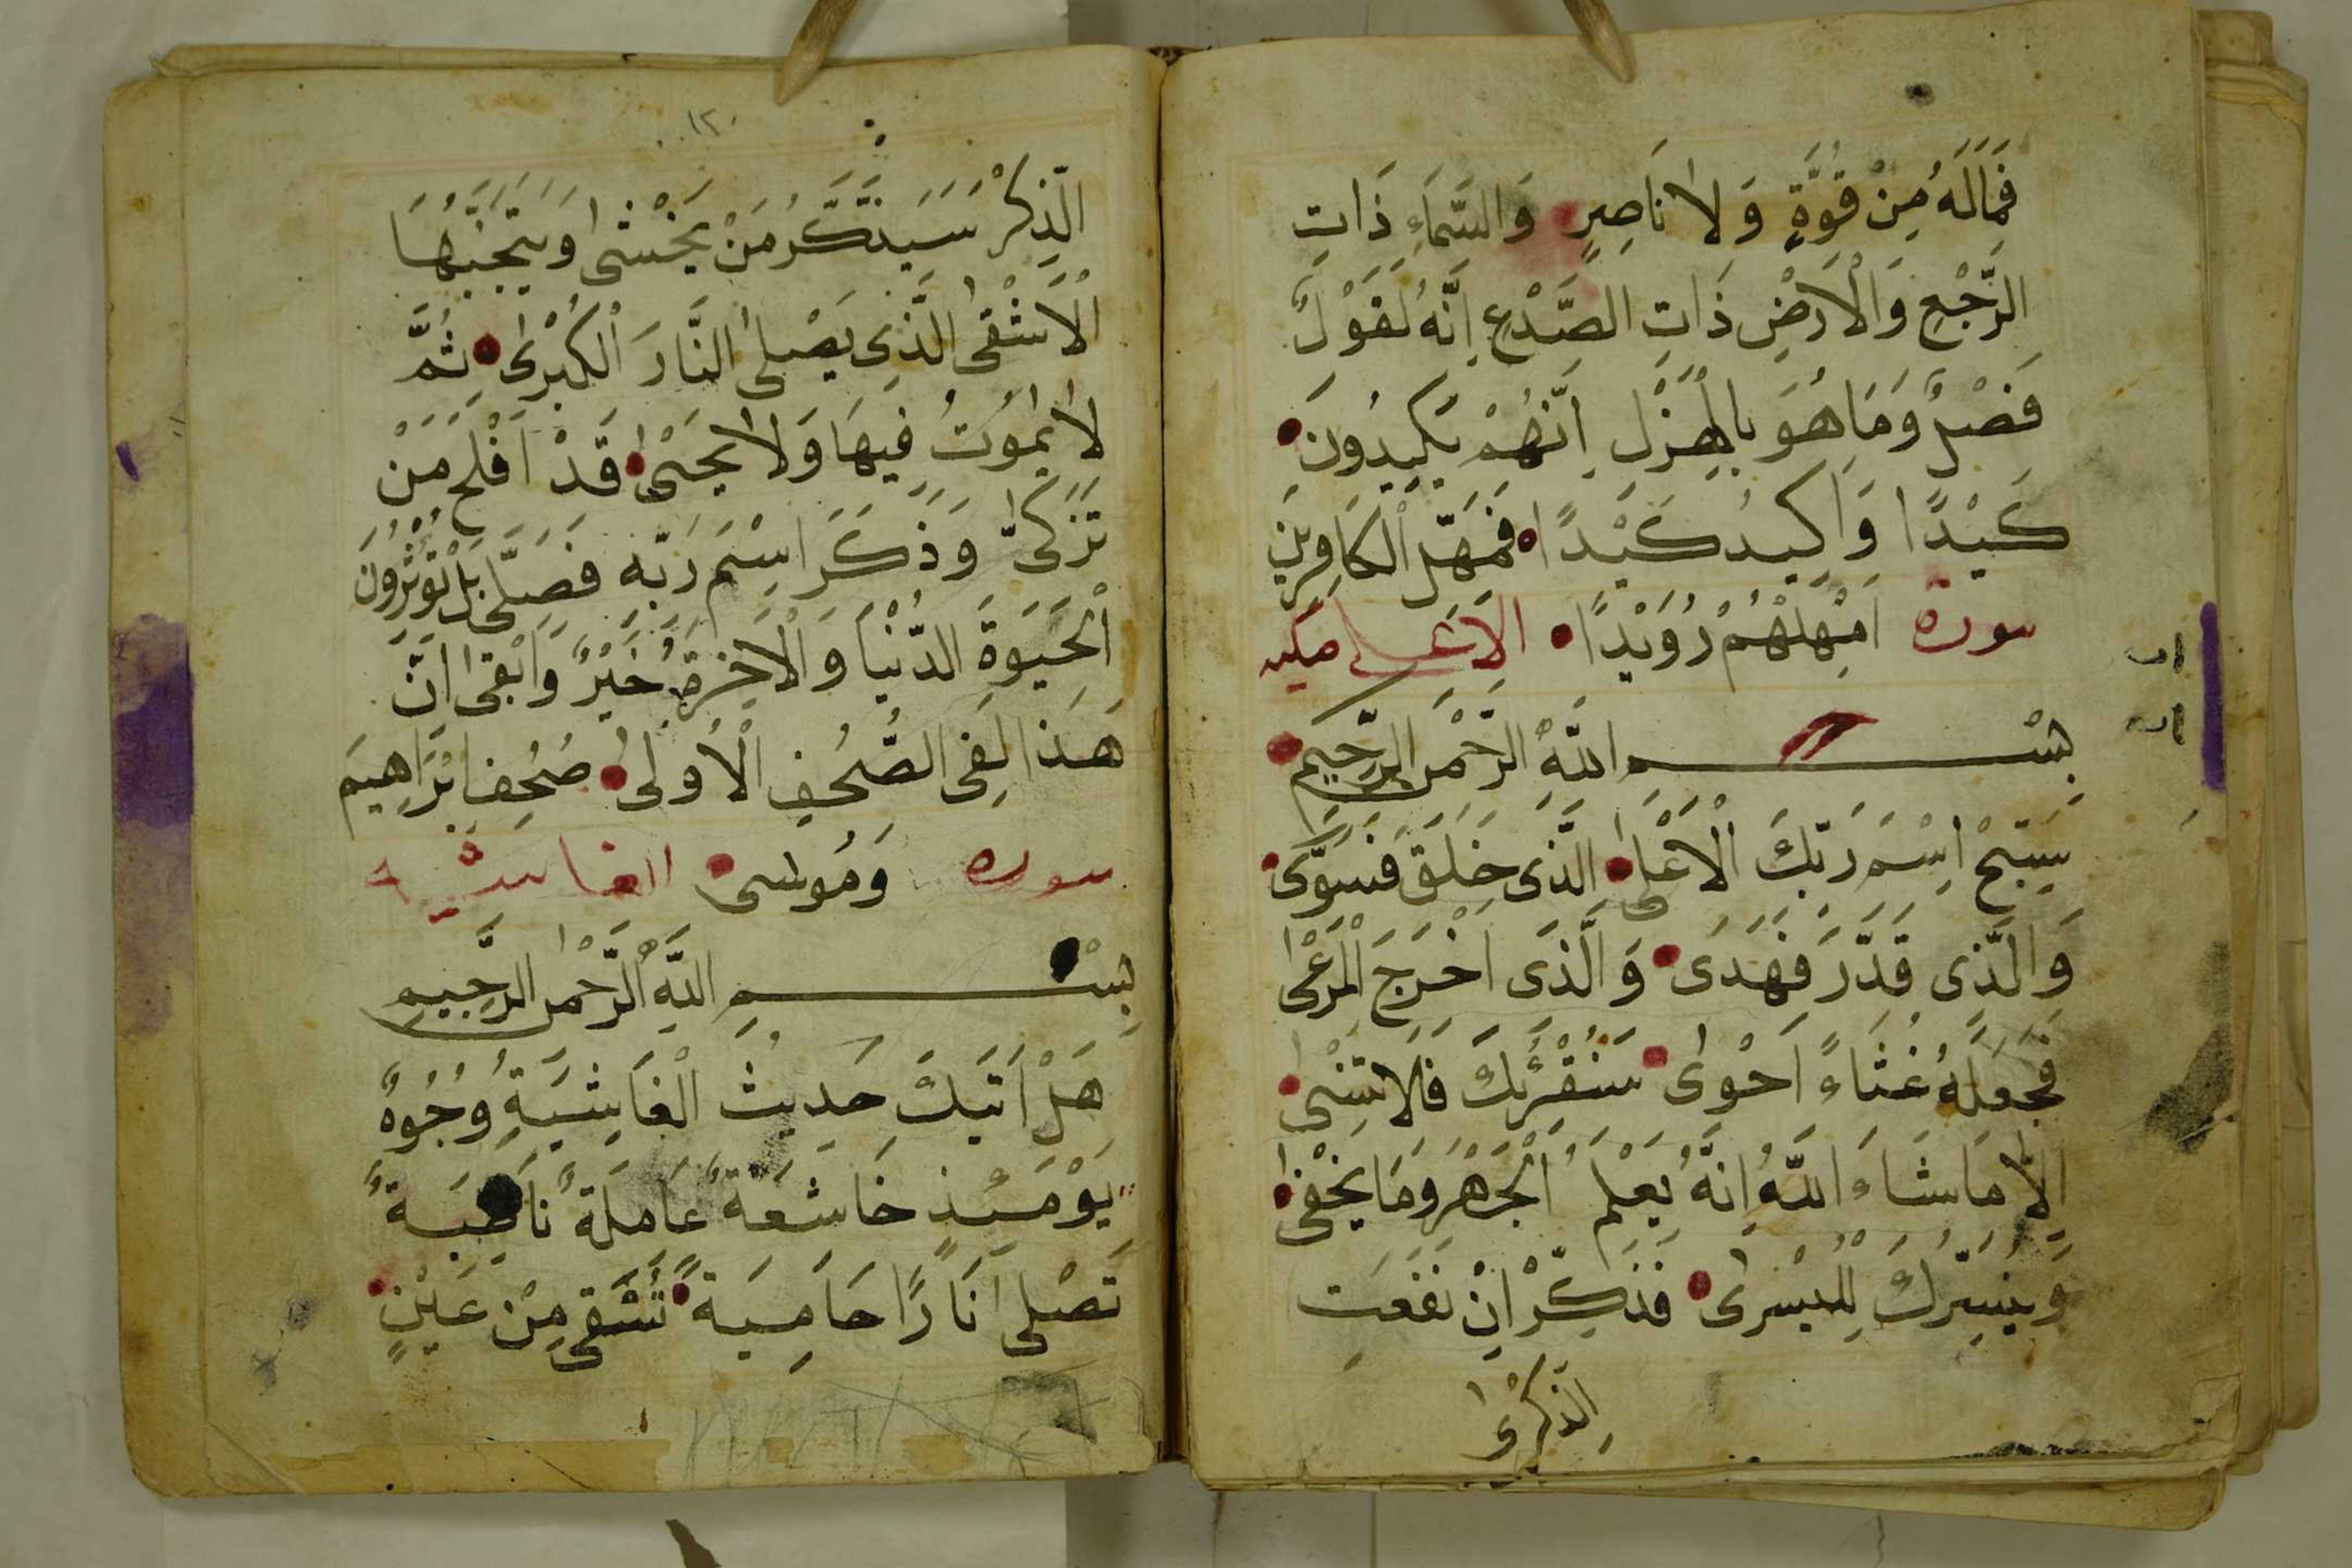 فَمَالَهُ مِنْ قُوَّةٍ وَلَا نَاصِرٍ وَالسَّمَاءِ ذَاتِ
الرَّجْعِ وَالْاَرْضِ ذَاتِ الصَّدْعِ اِنَّهُ لَقَوْلٌ
فَصْلٌ وَمَا هُوَ بِالْهَزْلِ اِنَّهُمْ يَكِيدُونَ
كَيْدًا وَاَكِيدُ كَيْدًا فَمَهِّلِ الْكَافِرِينَ
سورة اَمْهِلْهُمْ رُوَيْدًا الاعلى مكيه
بِسْمِ اللَّهِ الرَّحْمٰنِ الرَّحِيمِ
سَبِّحْ اِسْمَ رَبِّكَ الْاَعْلٰى الَّذِى خَلَقَ فَسَوّٰى
وَالَّذِى قَدَّرَ فَهَدٰى وَالَّذِى اَخْرَجَ الْمَرْعٰى
فَجَعَلَهُ غُثَاءً اَحْوٰى سَنُقْرِئُكَ فَلَا تَنْسٰى
اِلَّا مَا شَاءَ اللَّهُ اِنَّهُ يَعْلَمُ الْجَهْرَ وَمَا يَخْفٰى
وَنُيَسِّرُكَ لِلْيُسْرٰى فَذَكِّرْ اِنْ نَفَعَتِ
الذِّكْرٰى
١٢٠
الذِّكْرٰى سَيَذَّكَّرُ مَنْ يَخْشٰى وَيَتَجَنَّبُهَا
الْاَشْقَى الَّذِى يَصْلَى النَّارَ الْكُبْرٰى ثُمَّ
لَا يَمُوتُ فِيهَا وَلَا يَحْيٰى قَدْ اَفْلَحَ مَنْ
تَزَكّٰى وَذَكَرَ اسْمَ رَبِّهِ فَصَلّٰى بَلْ تُؤْثِرُونَ
الْحَيٰوةَ الدُّنْيَا وَالْاٰخِرَةُ خَيْرٌ وَاَبْقٰى اِنَّ
هٰذَا لَفِى الصُّحُفِ الْاُولٰى صُحُفِ اِبْرٰاهِيمَ
سوره وَمُوسٰى الغاشيه
بِسْمِ اللَّهِ الرَّحْمٰنِ الرَّحِيمِ
هَلْ اَتٰيكَ حَدِيثُ الْغَاشِيَةِ وُجُوهٌ
يَوْمَئِذٍ خَاشِعَةٌ عَامِلَةٌ نَاصِبَةٌ
تَصْلٰى نَارًا حَامِيَةً تُسْقٰى مِنْ عَيْنٍ